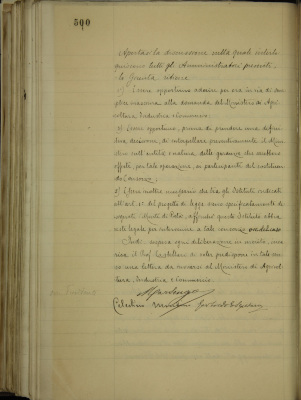 500
Apertasi la discussione sulla quale interlo
quiscono tutti gli Amministratori presenti
la Giunta ritiene
1) Essere opportuno aderire per ora in via di
massima alla domanda del Ministero di Agri
coltura Industria e Commercio
2) Essere opportuno, prima di prendere una defini
tiva decisione, di interpellare preventivamente il Mini
stero sull'entità e natura delle garanzie che verrebbero
offerte, per tale operazione, ai partecipanti del costituendo
Consorzio
3) Essere inoltre necessario che fra gli Istituti indicati
all'art. 1° del progetto di legge siano specificatamente de
signati i Monti di Pietà, affinchè questo Istituto abbia
veste legale per intervenire a tale consorzio
Indi, sospesa ogni deliberazione in merito, inca
rica il Prof. Castellani di voler predisporre in tale sen
so una lettera da inviarsi al Ministero di Agricol
tura, Industria e Commercio.